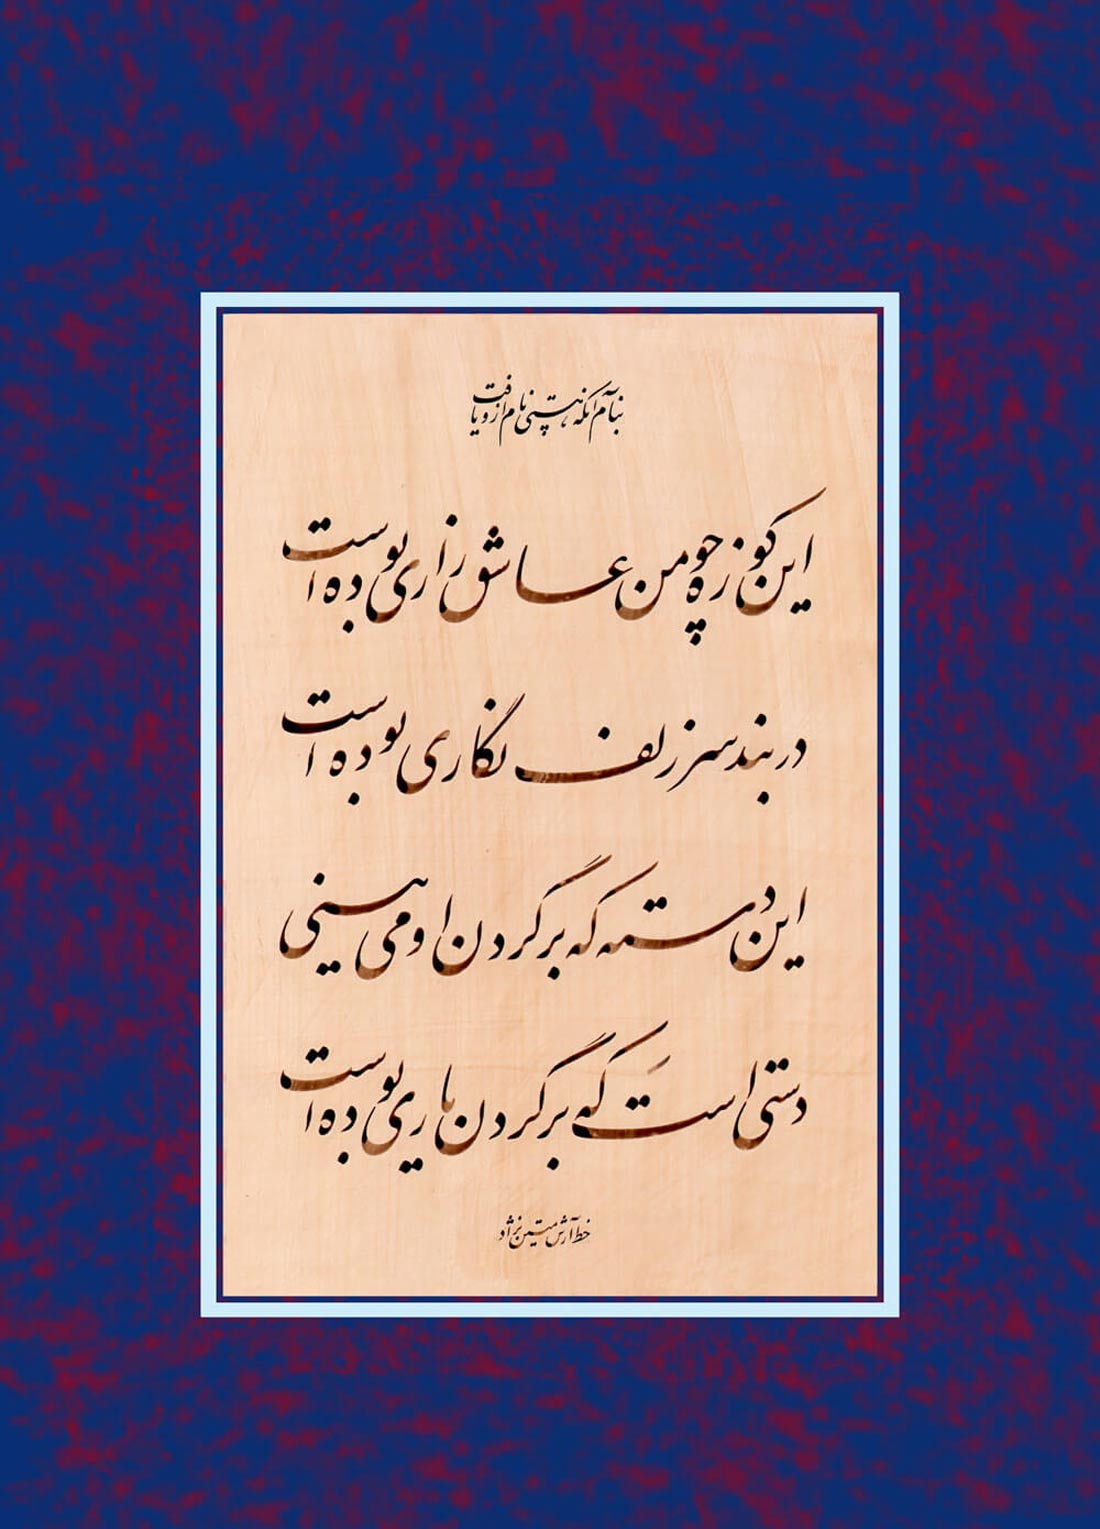 بنام آنکه هستی نام ازو یافت
این کوزه چو من عاشق زاری بوده است
در بند سر زلف نگاری بوده است
این دسته که بر گردن او می بینی
دستی است که بر گردن یاری بوده است
خط آرش متین نژاد